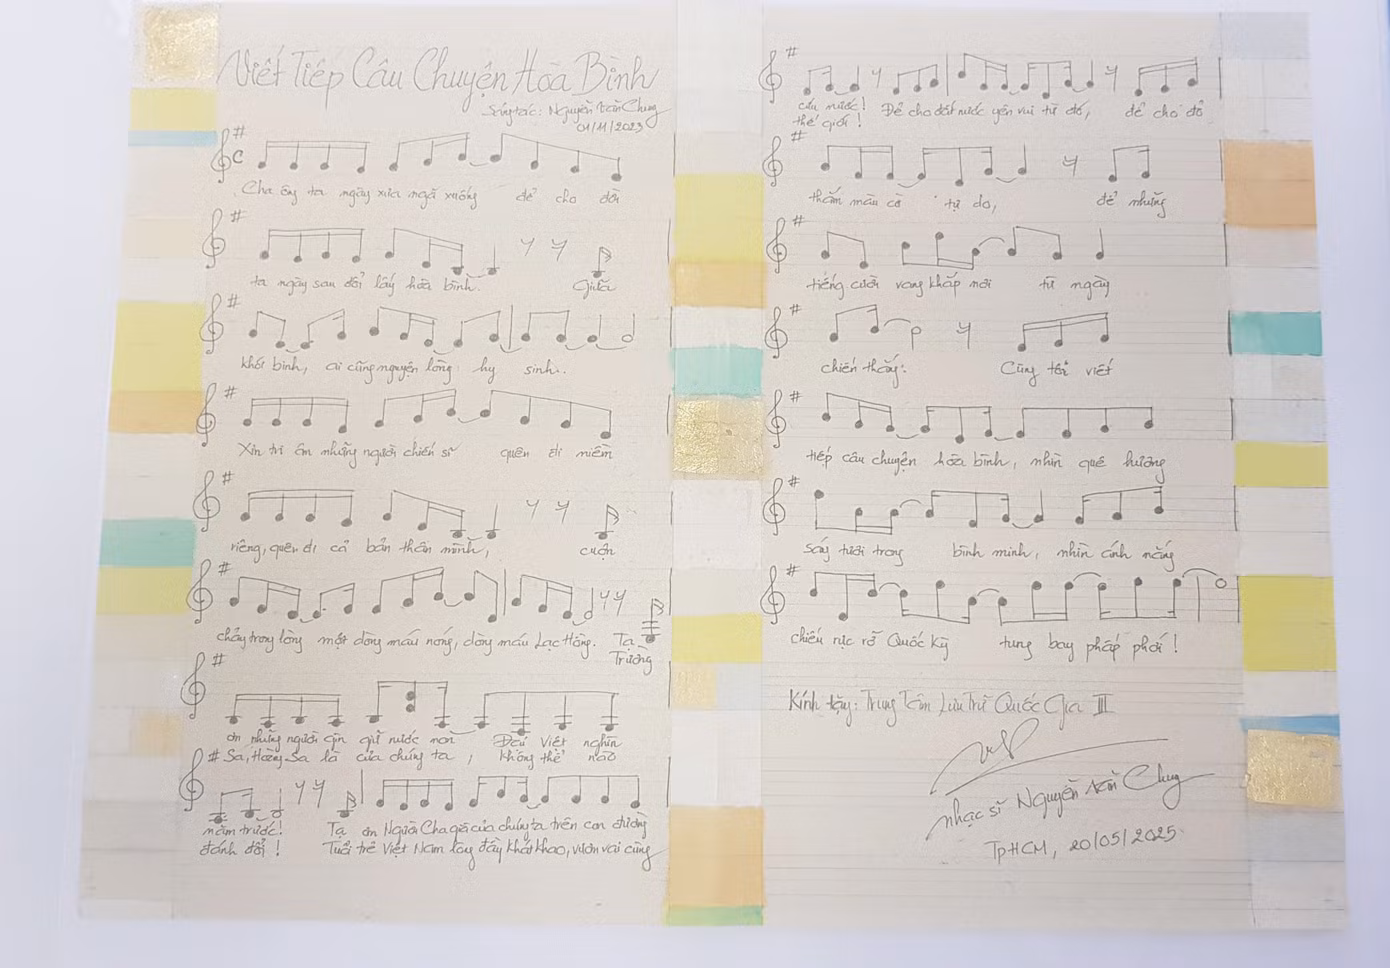 Viết Tiếp Câu Chuyện Hòa Bình
Sáng tác: Nguyễn Văn Chung
01/11/2023
Cha ông ta ngày xưa ngã xuống để cho đời
ta ngày sau đổi lấy hòa bình. Giữa
khói binh, ai cũng nguyện lòng hy sinh.
Xin tri ân những người chiến sĩ quên đi niềm
riêng, quên đi cả bản thân mình, cuộn
chảy trong lòng một dòng máu nóng, dòng máu Lạc Hồng. Tạ
Trường
ơn những người gìn giữ nước non Đấu Việt nghìn
Sa, Hoàng Sa là của chúng ta, không thể nào
năm trước! Tạ ơn Người Cha già của chúng ta trên con đường
đánh đổi! Tuổi trẻ Việt Nam lòng đầy khát khao, vươn vai cùng
cứu nước! Để cho đất nước yên vui từ đó, để cho đỏ
thế giới!
thắm màu cờ tự do, để những
tiếng cười vang khắp nơi từ ngày
chiến thắng. Cùng tôi viết
tiếp câu chuyện hòa bình, nhìn quê hương
sáng tươi trong bình minh, nhìn ánh nắng
chiếu rực rỡ Quốc Kỳ tung bay phấp phới!
Kính tặng: Trung Tâm Lưu Trữ Quốc Gia III
nhạc sĩ Nguyễn Văn Chung
TpHCM, 20/05/2025